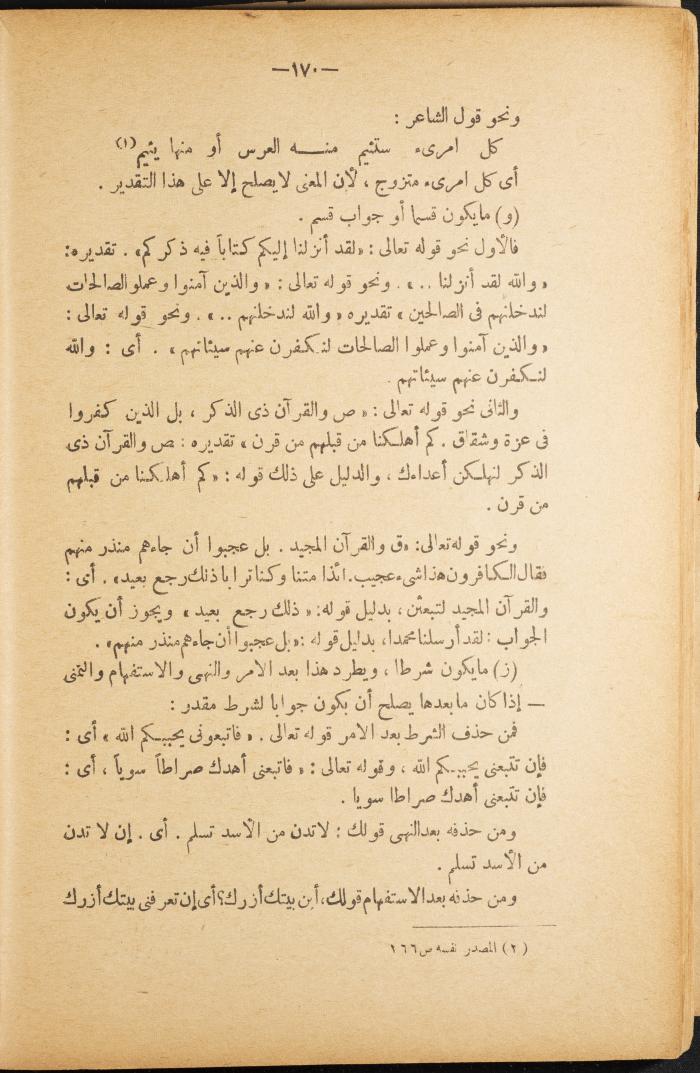 —١٧٠—
ونحو قول الشاعر :
كل امرىء ستئيم منـــه العرس أو منها يئيم(١)
أى كل امرىء متزوج ، لأن المعنى لا يصلح إلا على هذا التقدير .
(و) ما يكون قسما أو جواب قسم .
فالأول نحو قوله تعالى : «لقد أنزلنا إليكم كتاباً فيه ذكركم» . تقديره:
« والله لقد أنزلنا .. » . ونحو قوله تعالى : « والذين آمنوا وعملوا الصالحات
لندخلنهم فى الصالحين » تقديره « والله لندخلنهم .. » . ونحو قوله تعالى :
« والذين آمنوا وعملوا الصالحات لنكفرن عنهم سيئاتهم » . أى : والله
لنكفرن عنهم سيئاتهم .
والثانى نحو قوله تعالى : « ص والقرآن ذى الذكر ، بل الذين كفروا
فى عزة وشقاق . كم أهلكنا من قبلهم من قرن » تقديره : ص والقرآن ذى
الذكر لنهلكن أعداءك ، والدليل على ذلك قوله : « كم أهلكنا من قبلهم
من قرن .
ونحو قوله تعالى : «ق والقرآن المجيد . بل عجبوا أن جاءهم منذر منهم
فقال الكافرون هذا شىء عجيب . ائذا متنا وكنا ترابا ذلك رجع بعيد» . أى :
والقرآن المجيد لتبعثن ، بدليل قوله : « ذلك رجع بعيد » ويجوز أن يكون
الجواب : لقد أرسلنا محمدا، بدليل قوله : «بل عجبوا أن جاءهم منذر منهم» .
(ز) ما يكون شرطا ، ويطرد هذا بعد الامر والنهى والاستفهام والتمنى
— إذا كان ما بعدها يصلح أن يكون جوابا لشرط مقدر :
فمن حذف الشرط بعد الامر قوله تعالى . « فاتبعونى يحببكم الله » أى :
فإن تتبعنى يحببكم الله ، وقوله تعالى : « فاتبعنى أهدك صراطاً سوياً ، أى :
فإن تتبعنى أهدك صراطا سويا .
ومن حذفه بعد النهى قولك : لا تدن من الأسد تسلم . أى . إن لا تدن
من الأسد تسلم .
ومن حذفه بعد الاستفهام قولك، أين بيتك أزرك؟ أى إن تعرفنى بيتك أزرك
( ٢ ) المصدر نفسه ص ١٦٦